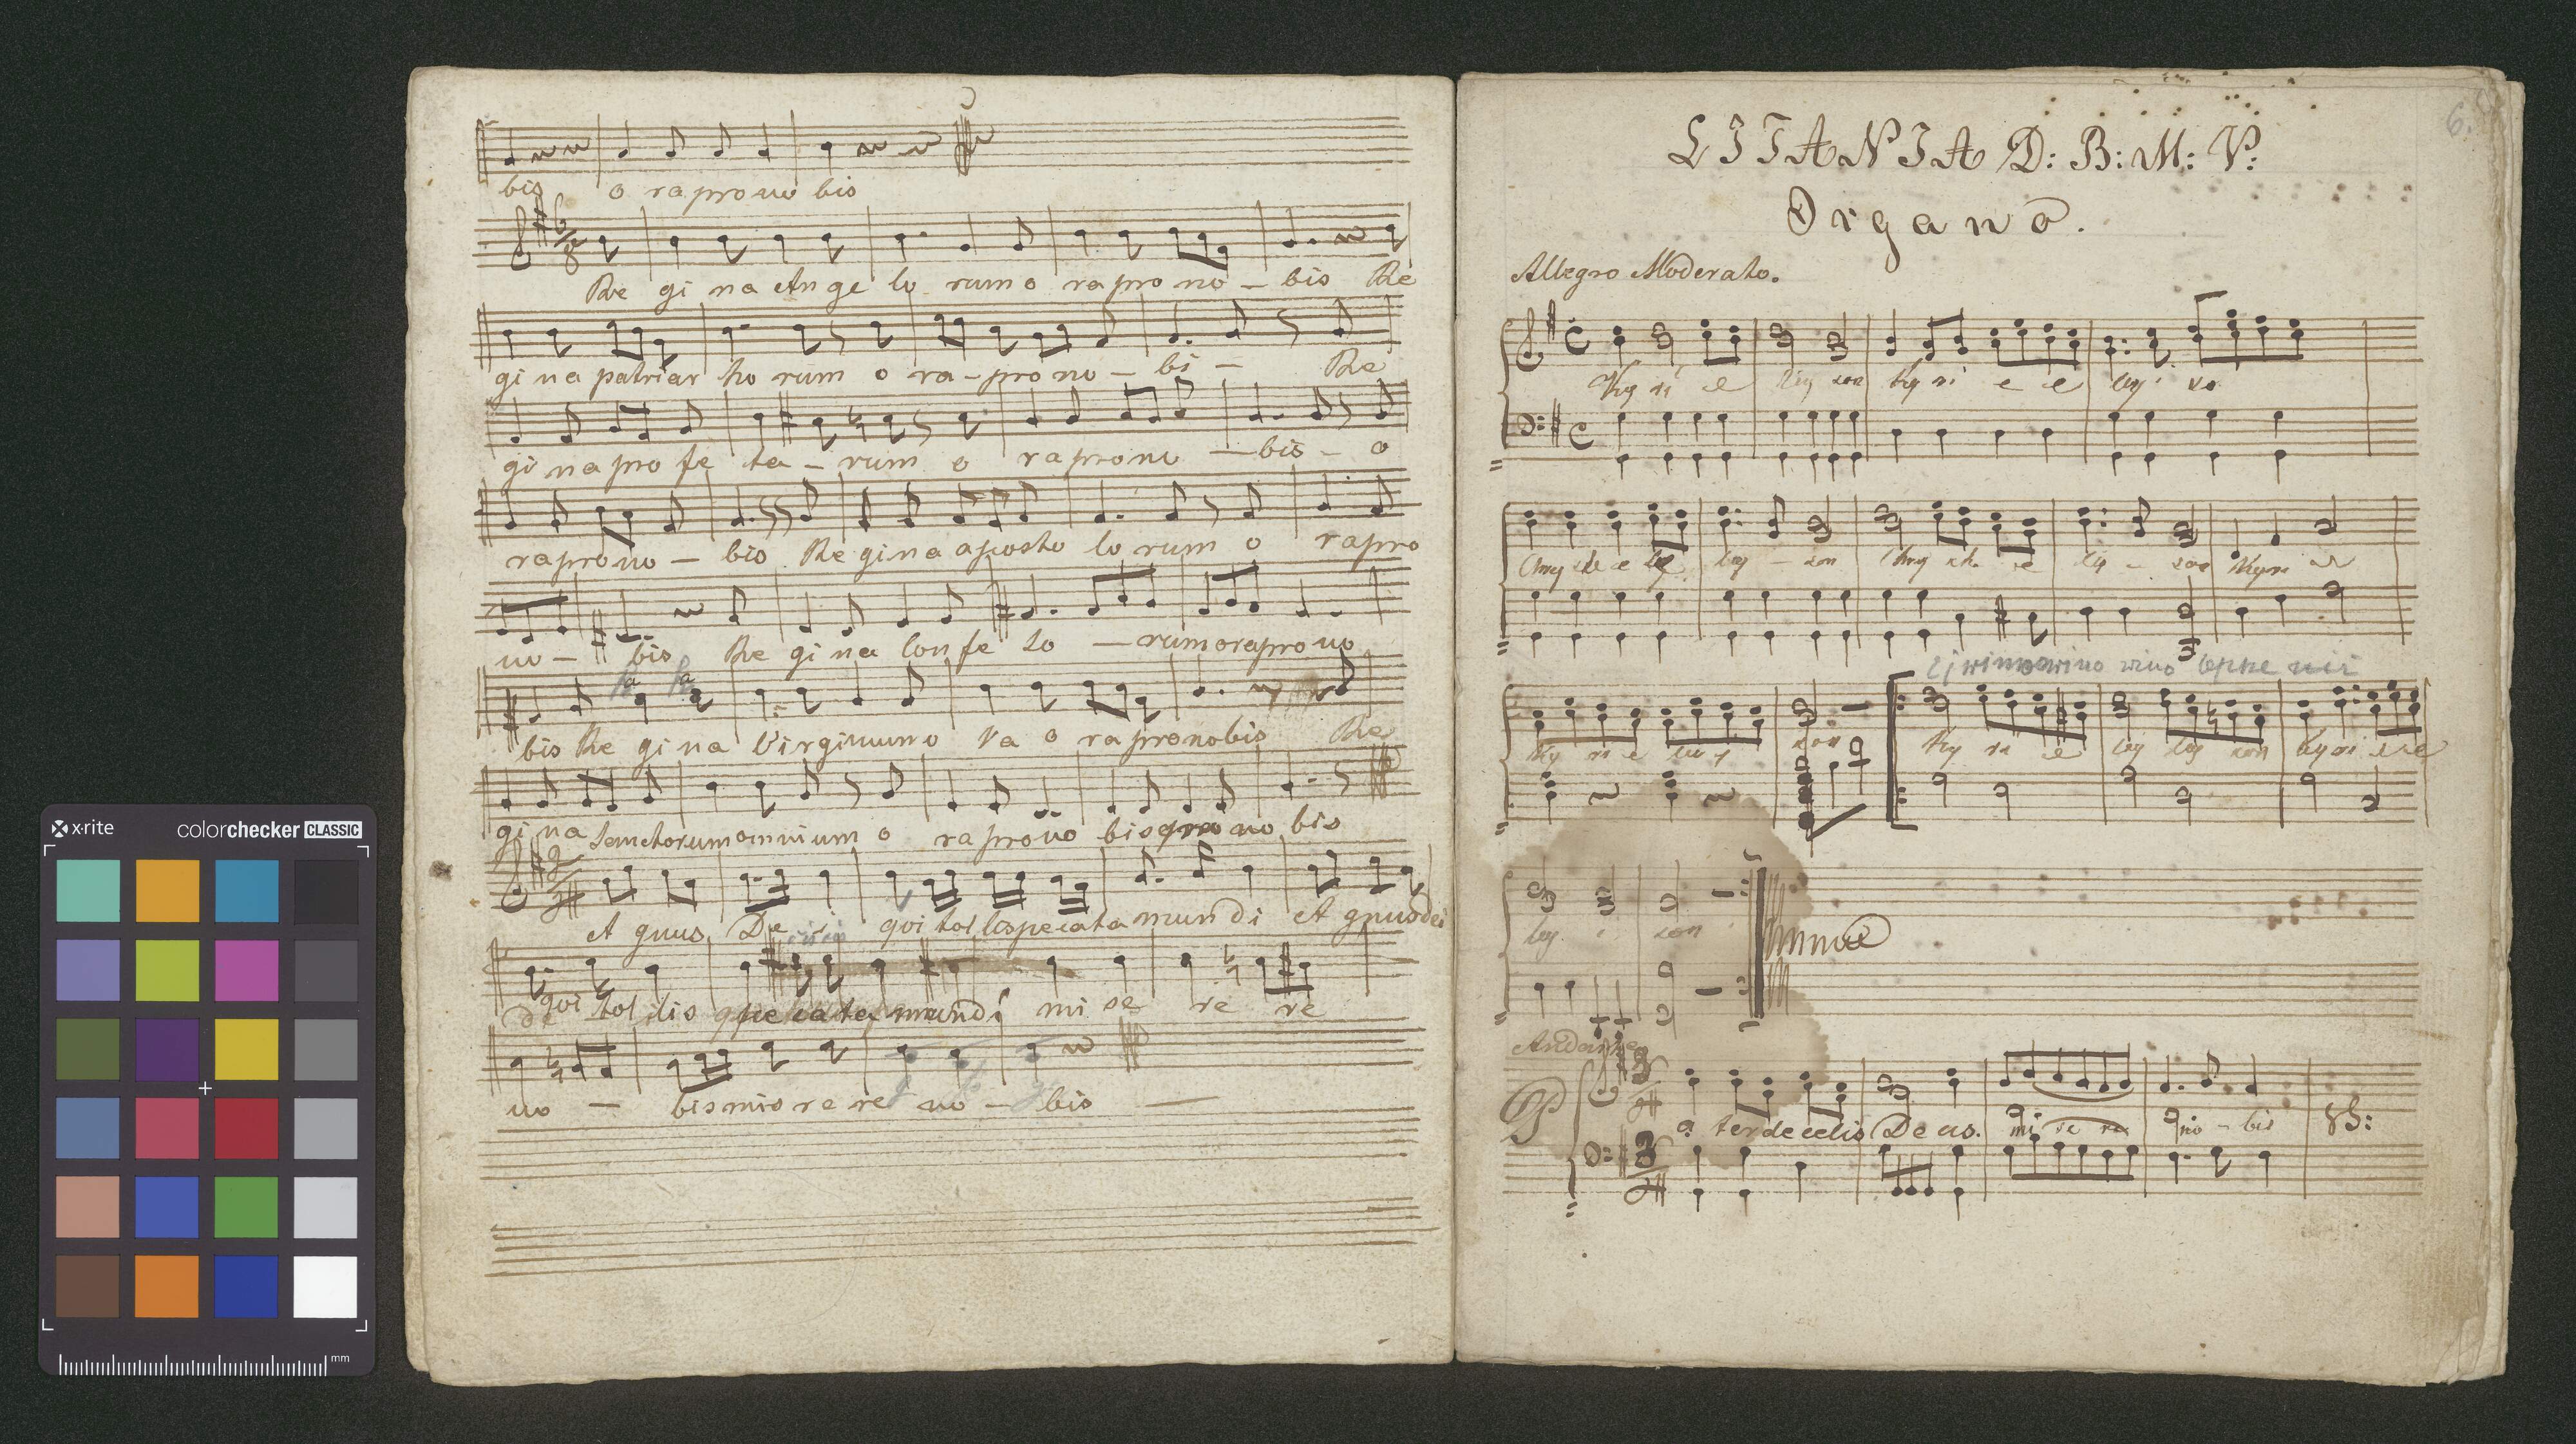 x·rite colorchecker CLASSIC
mm
bis o ra pro no bis
Re gi na An ge lo rum o ra pro no – bis Re
gi na patriar ho rum o ra – pro no – bi – Re
gi na pro fe ta – rum o ra pro no – bis – o
ra pro no – bis Re gi na aposto lo rum o ra pro
no – bis Re gi na Con fe so – rum o ra pro no
bis Re gi na Virginum o ra o ra pro no bis Re
gi na Sanctorum omnium o ra pro no bis o pro no bis
A gnus De i qui tol lis pecata mundi A gnus dei
qui tol lis pecata mundi mi se re re
no – bis mis re re no – bis –
6.
LITANIA D: B: M: V:
Organo.
Allegro Moderato.
Ky ri e ley son Ky ri e e ley
ley – son ley – son Kyri
Ky ri e son Ky ri e ley ley son Ky ri e
ley son
Andante
Pater de celis Deus. mi se re no – bis VS: